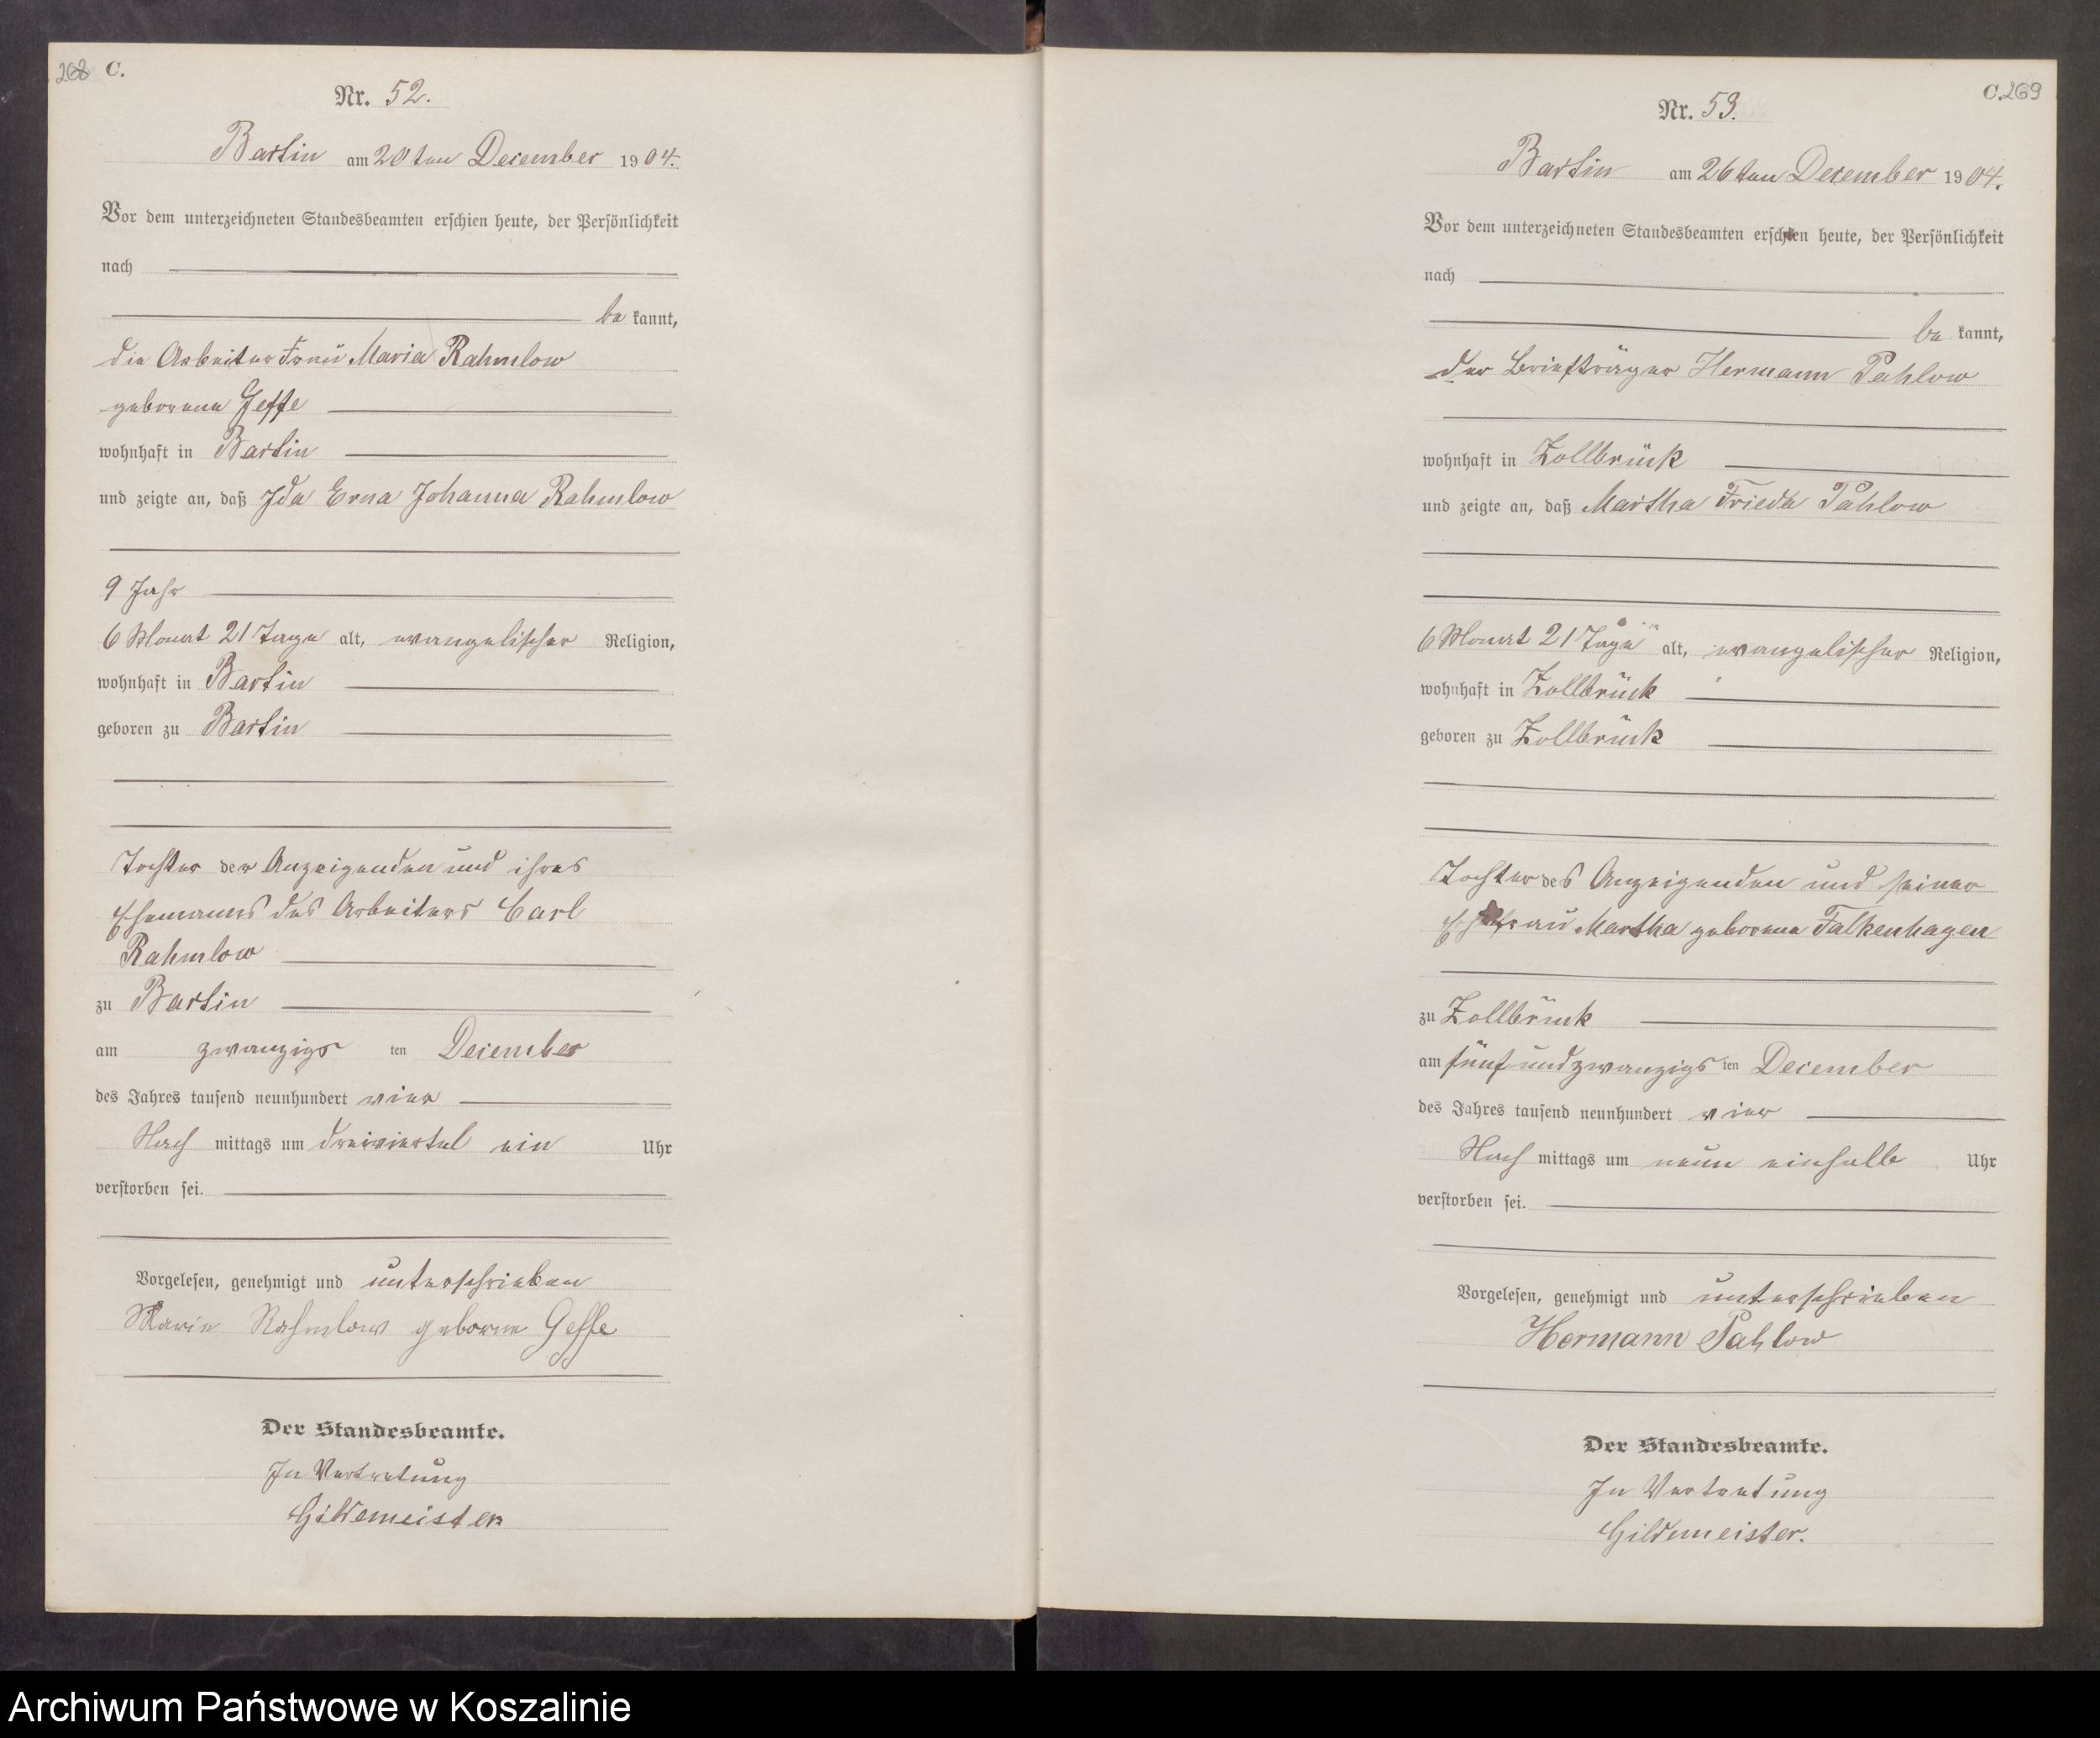 268 C.
Nr. 52.
Bartin am 20ten December 1904.
Vor dem unterzeichneten Standesbeamten erschien heute, der Persönlichkeit
nach
bekannt,
die Arbeiter Frau Maria Rahmlow
geborene Jeffe
wohnhaft in Bartin
und zeigte an, daß Ida Erna Johanna Rahmlow
9 Jahr
6 Monat 21 Tage alt, evangelischer Religion,
wohnhaft in Bartin
geboren zu Bartin
Tochter der Anzeigenden und ihres
Ehemanns des Arbeiters Carl
Rahmlow
zu Bartin
am zwanzigsten December
des Jahres tausend neunhundert vier
Nachmittags um dreiviertel ein Uhr
verstorben sei.
Vorgelesen, genehmigt und unterschrieben
Marie Rahmlow geborne Geffe
Der Standesbeamte.
In Vertretung
Gildemeister
C. 269
Nr. 53.
Bartin am 26ten December 1904.
Vor dem unterzeichneten Standesbeamten erschien heute, der Persönlichkeit
nach
bekannt,
der Briefträger Hermann Pahlow
wohnhaft in Zollbrück
und zeigte an, daß Martha Frieda Pahlow
6 Monat 21 Tage alt, evangelischer Religion,
wohnhaft in Zollbrück
geboren zu Zollbrück
Tochter des Anzeigenden und seiner
Ehefrau Martha geborene Falkenhagen
zu Zollbrück
am fünfundzwanzigsten December
des Jahres tausend neunhundert vier
Nachmittags um neun einhalb Uhr
verstorben sei.
Vorgelesen, genehmigt und unterschrieben
Hermann Pahlow
Der Standesbeamte.
In Vertretung
Gildemeister.
Archiwum Państwowe w Koszalinie